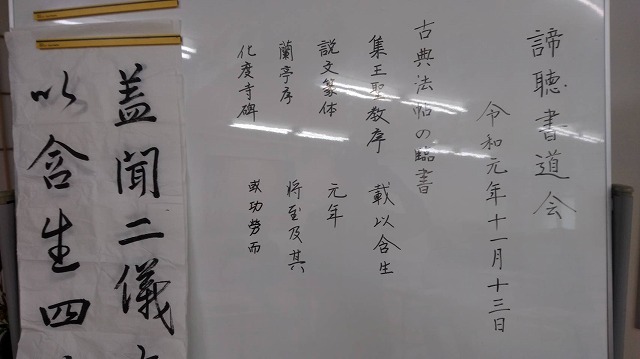 諦聴書道会
令和元年十一月十三日
古典法帖の臨書
集王聖教序 載以含生
説文篆体 元年
蘭亭序 将至及其
化度寺碑 或功劳而
蓋聞二儀
以含生四